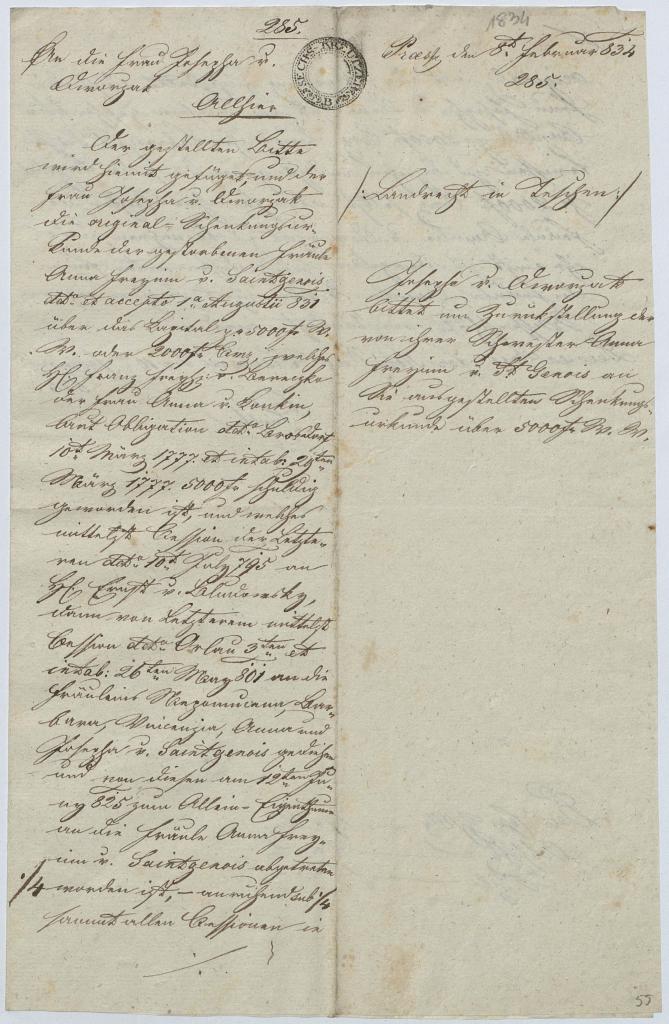 285.
An die Frau Josepha v.
Dworzak
Allhier
Der gestellten Bitte
wird hiemit gefüget, und der
Frau Josepha v. Dworzak
die original-Schenkungsur-
kunde der gestorbenen Fräule
Anna Freyinn v. Saintgenois
dd. et accepto 1a Augustii 831
über das Capital pr 5000 fr W.
W. oder 2000 fr Cmz, welches
H. Franz Freyh: v. Bereczko
der Frau Anna v.
laut Obligation dd.
10t März 1777. et intab: 29ten
März 1777. 5000 fr schuldig
geworden ist, und welches
mittelst Cession der Letzte-
ren dd. 10t July 795 an
H. Ernst v. Bludowsky,
dann von Letzterem mittelst
Cession dd. Orlau 3ten et
intab: 26ten May 801 an die
Fräuleins Nepomucena, Bar-
bara, Vincenzia, Anna und
Josepha v. Saintgenois gediehen
und von diesen am 12ten Ju-
ny 825 zum Allein-Eigenthume
an die Fräule Anna Frey-
inn v. Saintgenois abgetreten
·/4 worden ist, – anruhend sub ·/4
sammt allen Cessionen in
1834
SECHS KREUTZER
Praes. den 8t Februar 834
285.
/: Landrecht in Teschen :/
Josepha v. Dworzak
bittet um Zurückstellung der
von ihrer Schwester Anna
Freyinn v. St Genois an
Sie ausgestellten Schenkungs-
urkunde über 5000 fr W. W.
55